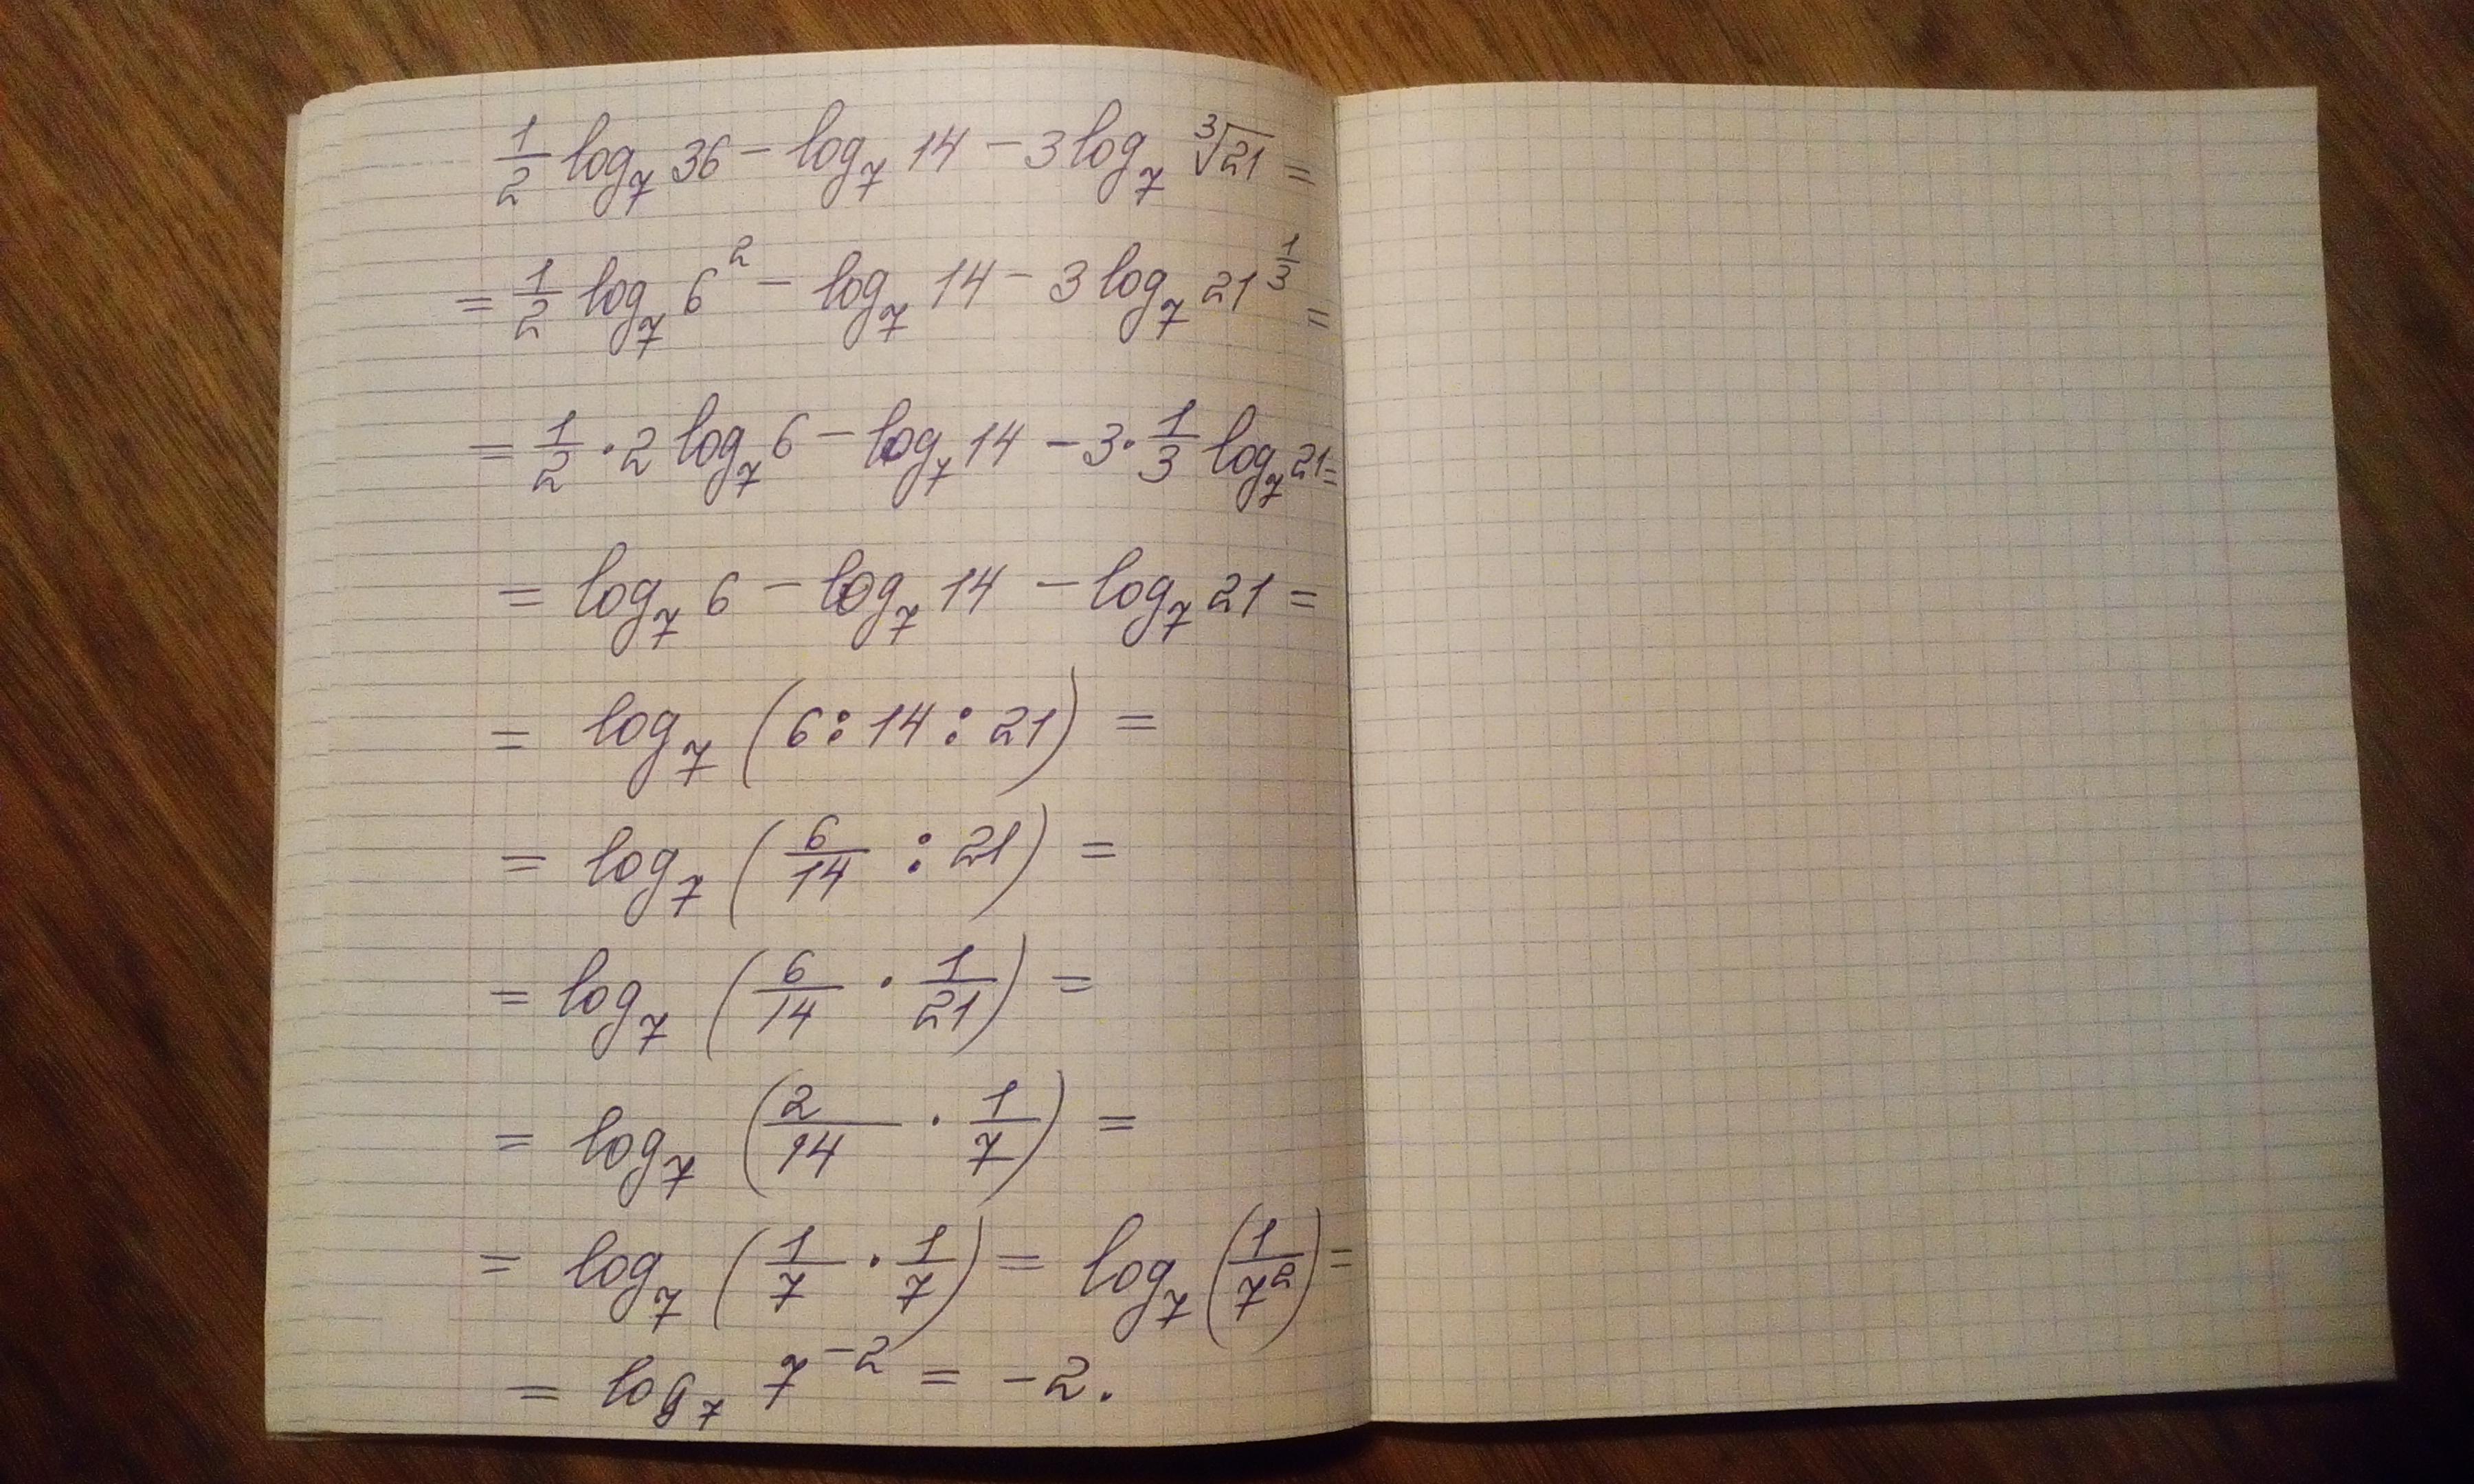 1/2 log₇ 36 − log₇ 14 − 3 log₇ ∛21 =
= 1/2 log₇ 6² − log₇ 14 − 3 log₇ 21^(1/3) =
= 1/2 · 2 log₇ 6 − log₇ 14 − 3 · 1/3 log₇ 21 =
= log₇ 6 − log₇ 14 − log₇ 21 =
= log₇ (6 : 14 : 21) =
= log₇ (6/14 : 21) =
= log₇ (6/14 · 1/21) =
= log₇ (2/14 · 1/7) =
= log₇ (1/7 · 1/7) = log₇ (1/7²) =
= log₇ 7⁻² = −2.